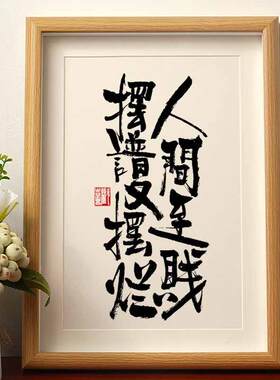 人間至賤
擺譜又擺烂